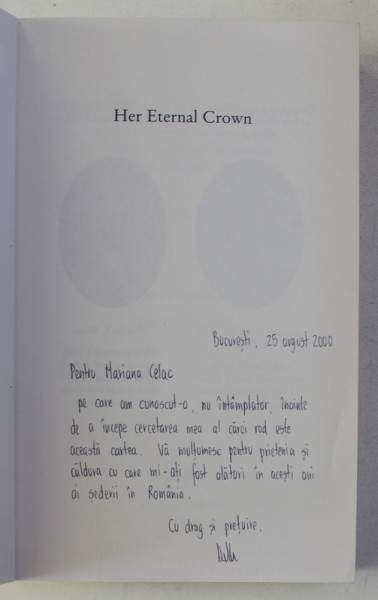 Her Eternal Crown
București, 25 august 2000
Pentru Mariana Celac
pe care am cunoscut-o, nu întâmplator, înainte
de a începe cercetarea mea al cărei rod este
aceasta cartea. Vă mulțumesc pentru prietenia și
căldura cu care mi-ați fost alături în acești ani
ai șederii în România.
Cu drag și prețuire,